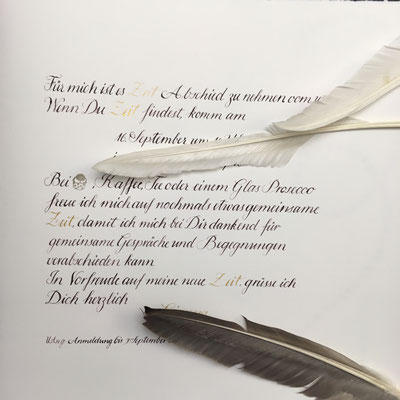 Für mich ist es Zeit Abschied zu nehmen vom
Wenn Du Zeit findest, komm am
16. September um
Bei , Kaffee, Tee oder einem Glas Prosecco
freue ich mich auf nochmals etwas gemeinsame
Zeit, damit ich mich bei Dir dankend für
gemeinsame Gespräche und Begegnungen
verabschieden kann
In Vorfreude auf meine neue Zeit, grüsse ich
Dich herzlich
Anmeldung bis September